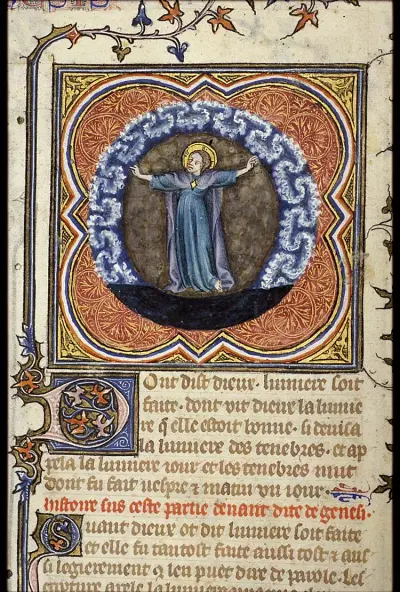 Dont dist dieux. lumiere soit
faite. dont vit dieux la lumie
re q̃ elle estoit bonne. si deuisa
la lumiere des tenebres. et ap
pela la lumiere iour et les tenebres nuit
dont fu fait uespre ⁊ matin un iour.
histoire sus ceste partie deuant dite de genesi.
Quant dieux ot dit lumiere soit faite
et elle fu tantost faite aussi tost ⁊ aus
si legierement q̃ len puet dire de parole. Les